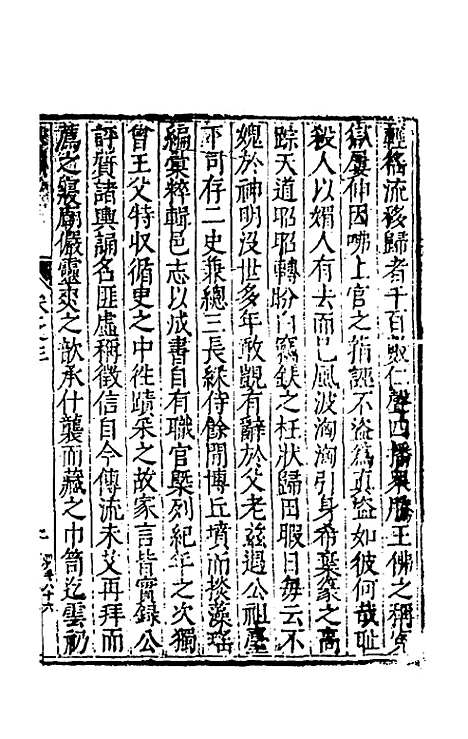 輕徭流移歸者千百戢仁聲四播衆騰王佛之稱冤
獄屢伸因咈上官之指誣不盜為真盜如彼何哉耻
殺人以媚人有去而已風波洶洶引身希棄篆之高
踪天道昭昭轉盼白竊鈇之枉狀歸田暇日每云不
媿於神明沒世多年敢覬有辭於父老兹遇公祖塵
下司存二史乘總三長綵侍餘閒博丘墳而掞藻瑶
編彙粹輯邑志以成書自有職官槩列紀年之次獨
曾王父特收循吏之中徃蹟采之故家言皆實録公
評質諸輿誦名匪虛稱徵信自今傳流未艾再拜而
薦之寢廟儼靈爽之歆承什襲而藏之巾笥迄雲礽
卷之三